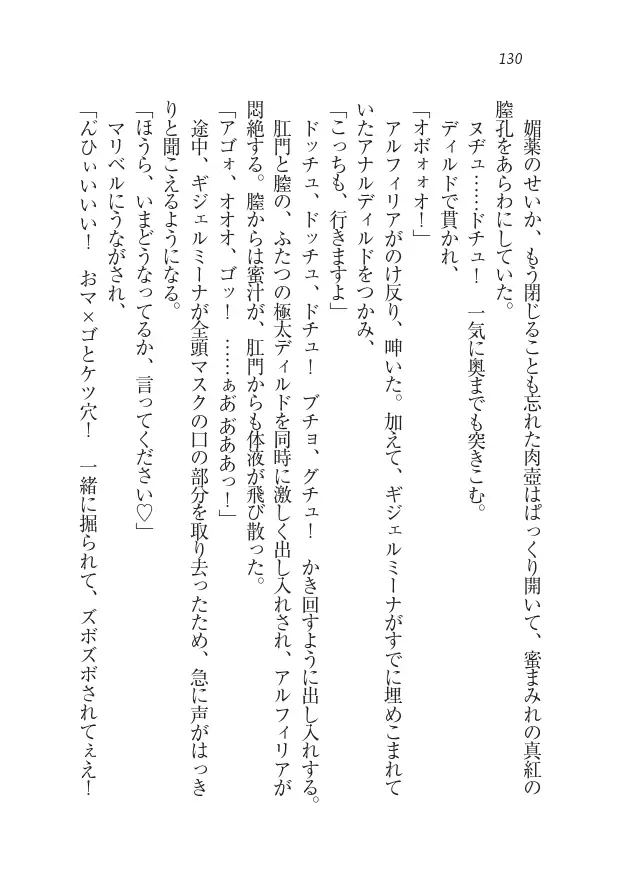 130
媚薬のせいか、もう閉じることも忘れた肉壺はぱっくり開いて、蜜まみれの真紅の
膣孔をあらわにしていた。
ヌヂュ……ドチュ！　一気に奥までも突きこむ。
ディルドで貫かれ、
「オボォォオ！」
アルフィリアがのけ反り、呻いた。加えて、ギジェルミーナがすでに埋めこまれて
いたアナルディルドをつかみ、
「こっちも、行きますよ」
ドッチュ、ドッチュ、ドチュ！　ブチョ、グチュ！　かき回すように出し入れする。
肛門と膣の、ふたつの極太ディルドを同時に激しく出し入れされ、アルフィリアが
悶絶する。膣からは蜜汁が、肛門からも体液が飛び散った。
「アゴォ、オオオ、ゴッ！　……ぁあ゛あ゛ああっ！」
途中、ギジェルミーナが全頭マスクの口の部分を取り去ったため、急に声がはっき
りと聞こえるようになる。
「ほうら、いまどうなってるか、言ってください♡」
マリベルにうながされ、
「ん゛ひぃいいい！　おマ×ゴとケツ穴！　一緒に掘られて、ズボズボされてぇえ！